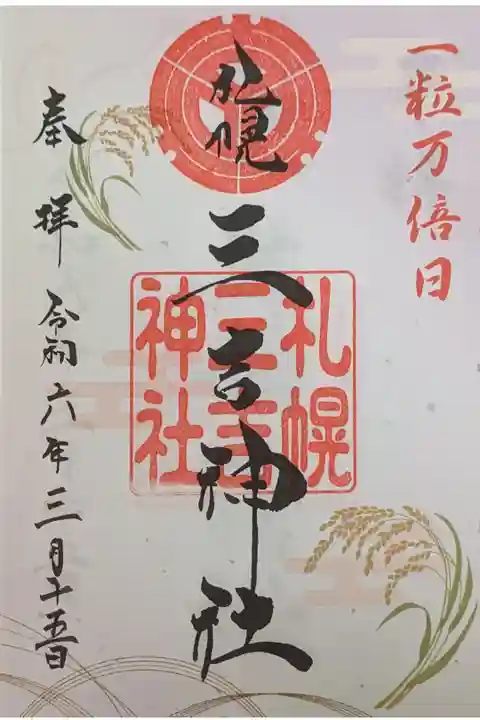 一粒万倍日
札幌
三吉神社
札幌
三吉
神社
奉拝 令和六年三月十五日